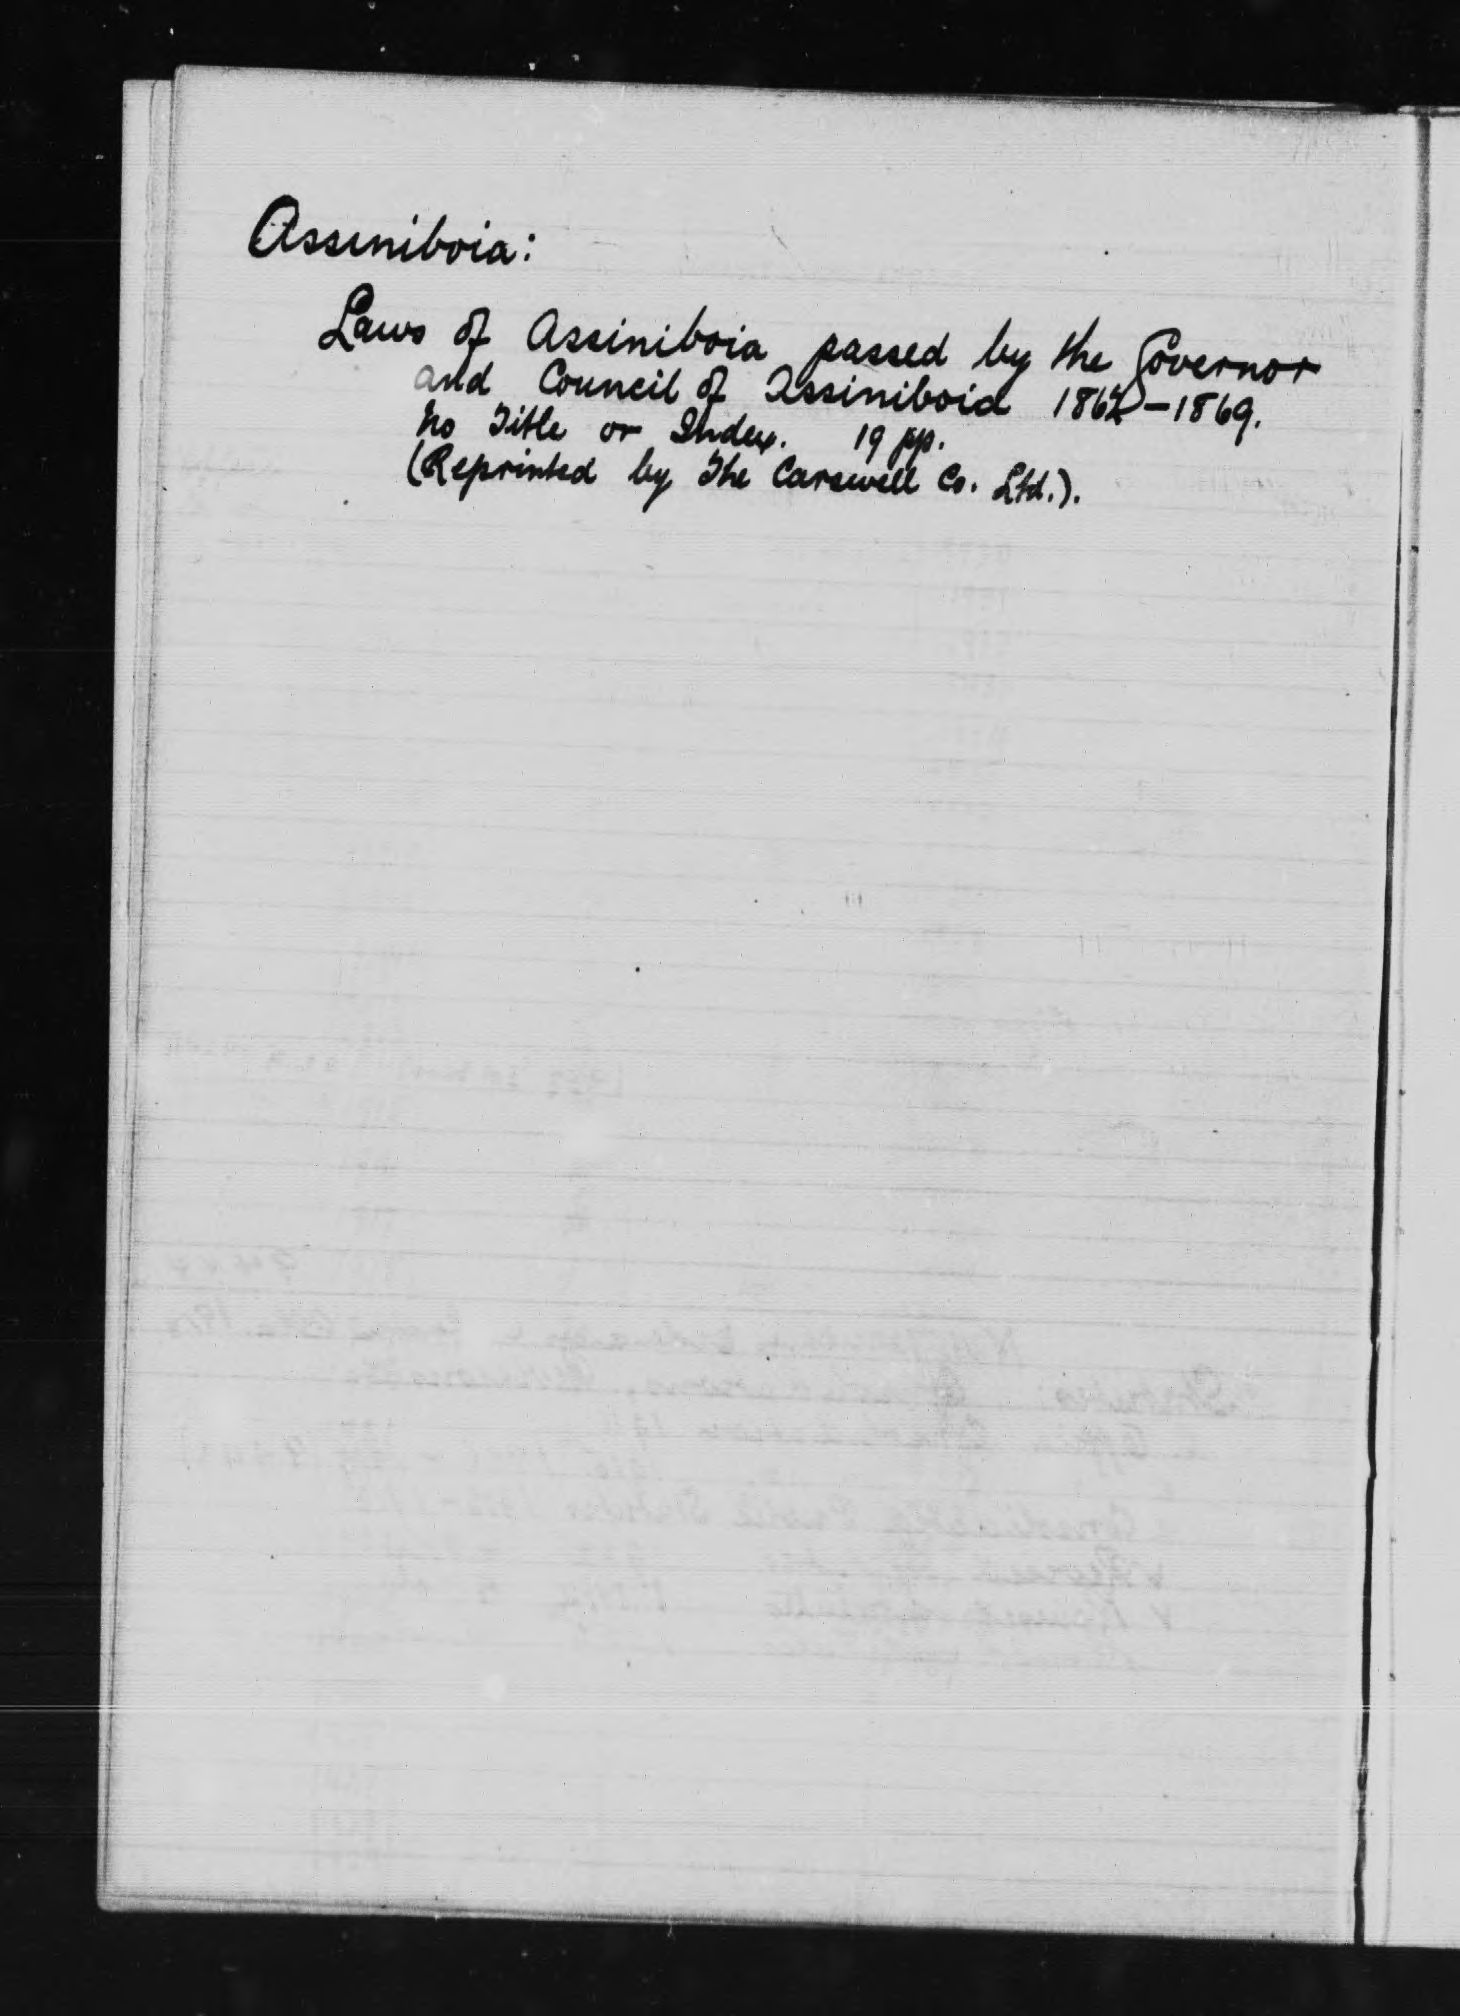 Assiniboia:
Laws of Assiniboia passed by the Governor
and Council of Assiniboia 1862-1869.
No Title or Index. 19 pp.
(Reprinted by The Carswell Co. Ltd.).